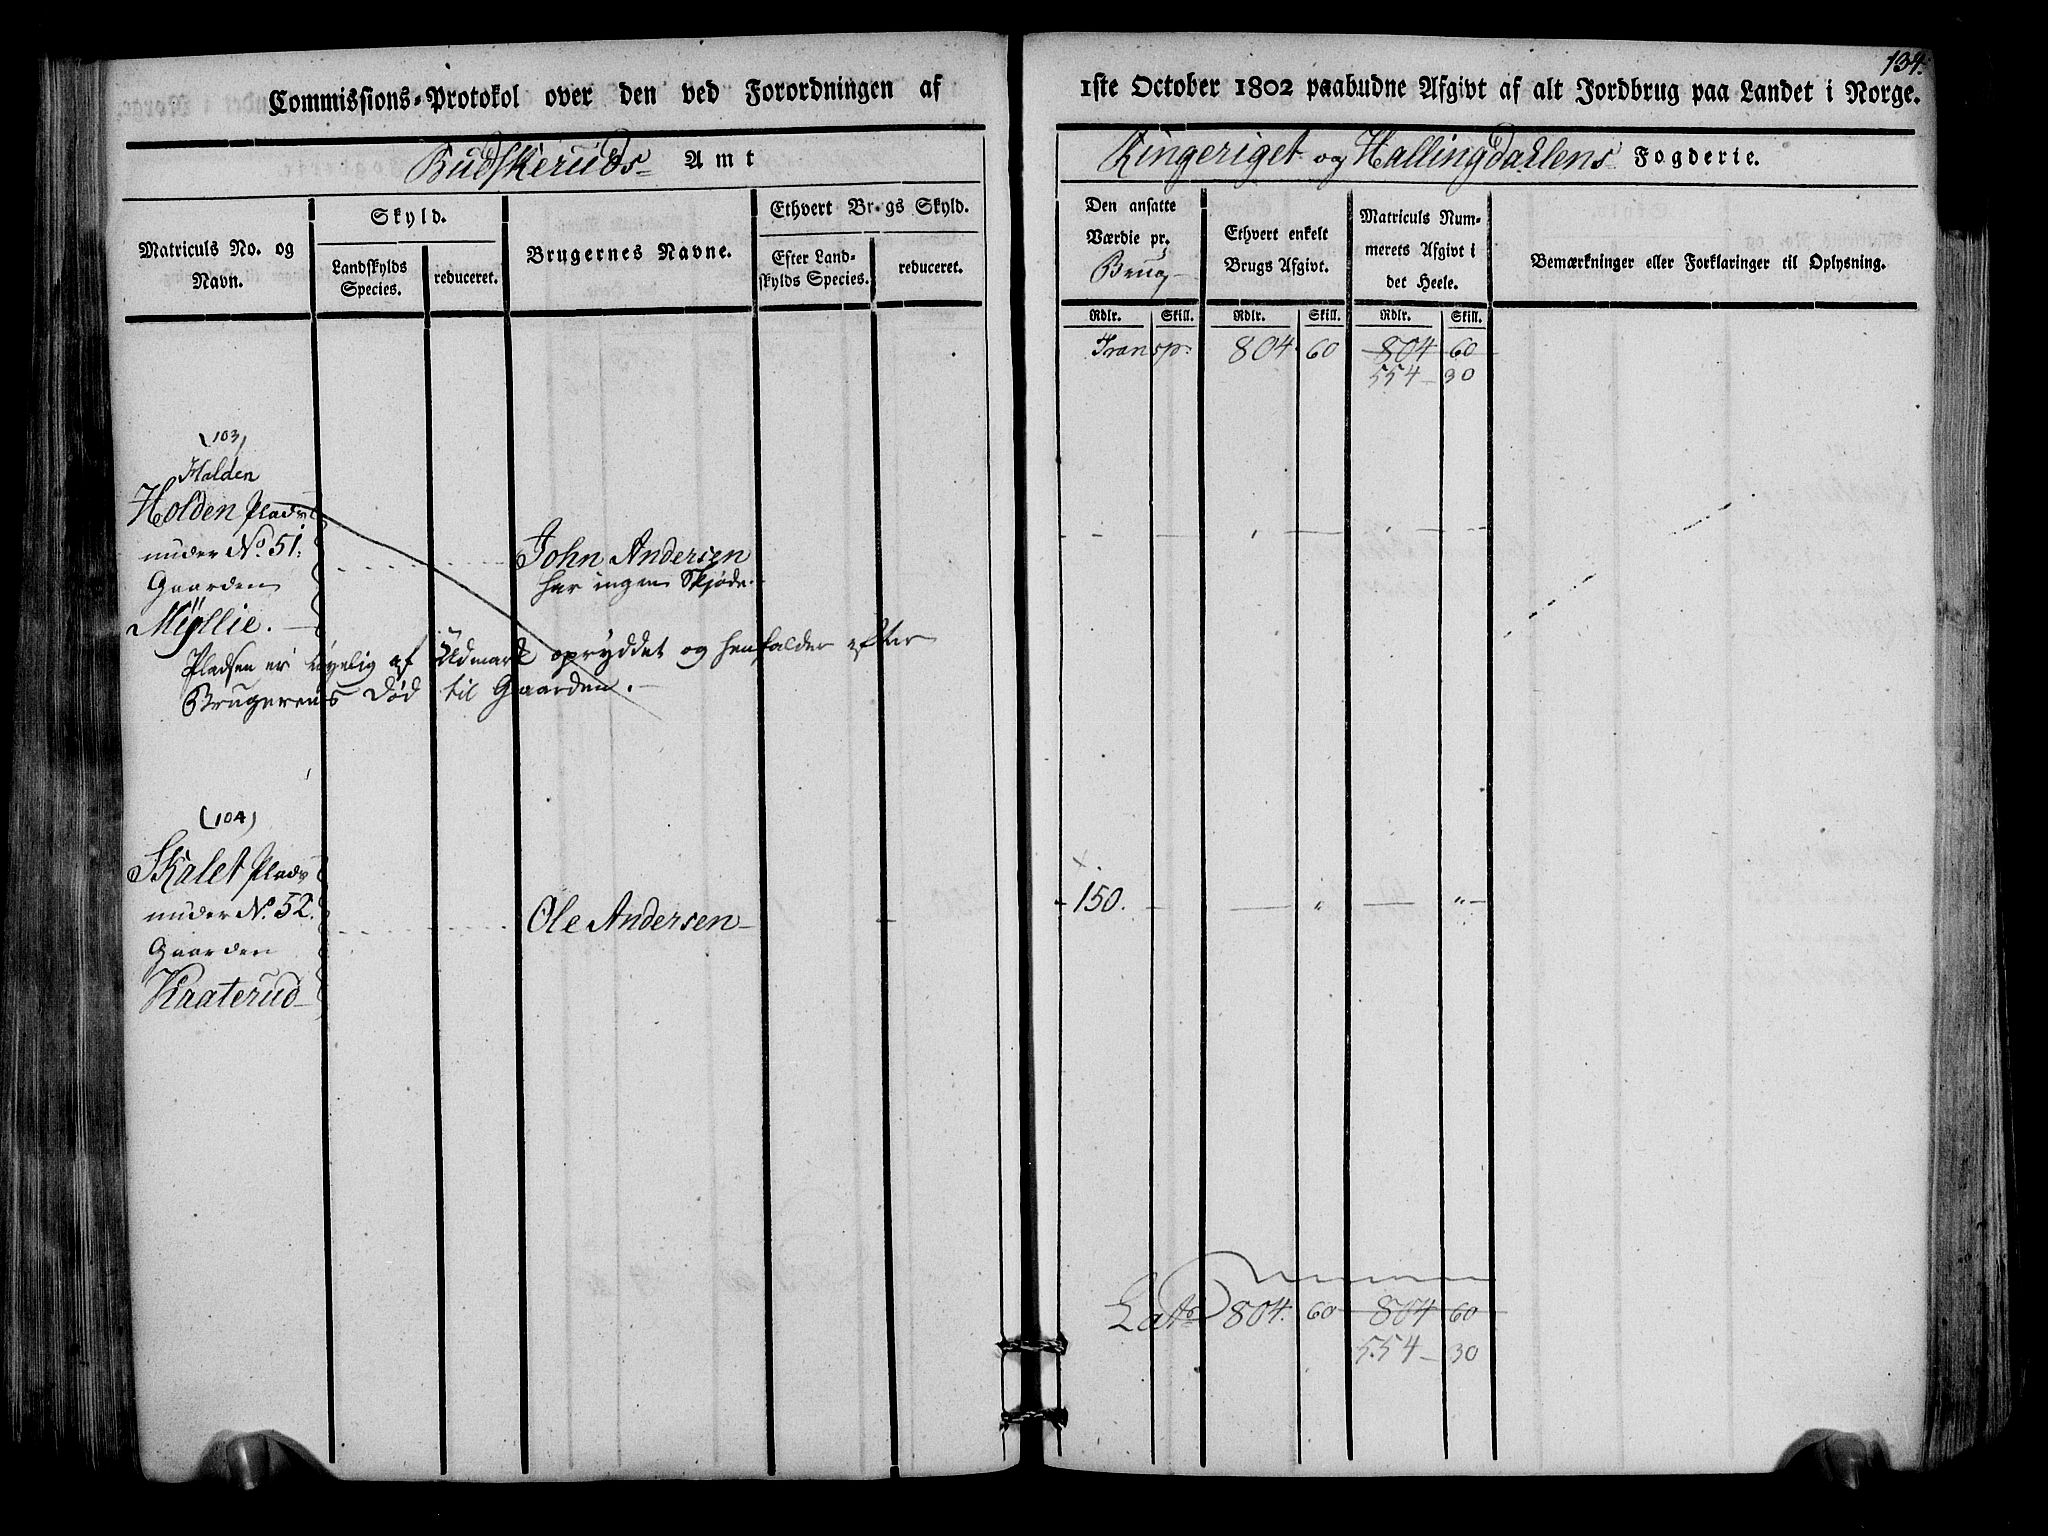 134.
Commissions-Protokol over den ved Forordningen af 1ste October 1802 paabudne Afgivt af alt Jordbrug paa Landet i Norge.
Budskeruds Amt
Ringeriget og Hallingdalens Fogderie.
Matriculs No. og Navn.
Skyld.
Landskylds Species.
reduceret.
Brugernes Navne.
Ethvert Brugs Skyld.
Efter Landskylds Species.
reduceret.
Den ansatte Værdie pr. Brug
Ethvert enkelt Brugs Afgivt.
Matriculs Nummerets Afgivt i det Heele.
Bemærkninger eller Forklaringer til Oplysning.
Rdlr. Skill. Rdlr. Skill. Rdlr. Skill.
Transp: 804. 60 804 60
554 - 30
(103)
Halden
Holden Plads
under No 51.
Gaarden
Mÿllie.
John Andersen
har ingen Skjøde.
Pladsen er nyelig af Udmark opryddet og henfalder efter
Brugerens Död til Gaarden.
(104)
Skalet Plads
under No. 52.
Gaarden
Kraterud
Ole Andersen
150. - - " - "
Late 804. 60 804 60
554 - 30